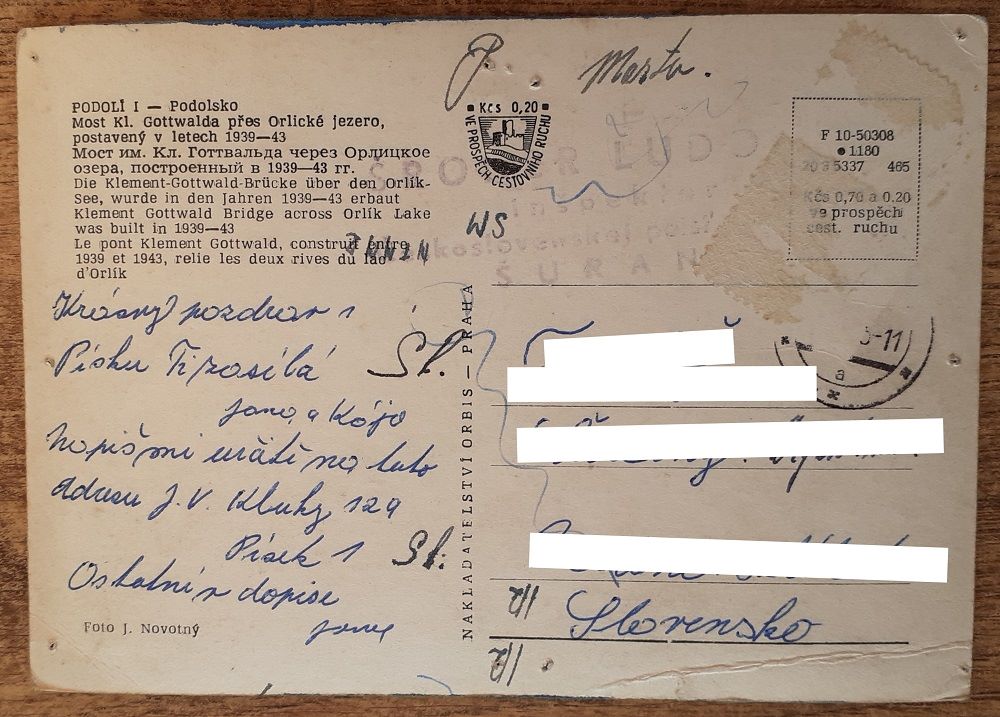 P. Marta.
PODOLÍ I — Podolsko
Most Kl. Gottwalda přes Orlické jezero,
postavený v letech 1939—43
Мост им. Кл. Готтвальда через Орлицкое
озера, построенный в 1939-43 гг.
Die Klement-Gottwald-Brücke über den Orlík-
See, wurde in den Jahren 1939—43 erbaut
Klement Gottwald Bridge across Orlík Lake
was built in 1939—43
Le pont Klement Gottwald, construit entre
1939 et 1943, relie les deux rives du lac
d'Orlík
Kčs 0,20
VE PROSPĚCH CESTOVNÍHO RUCHU
F 10-50308
1180
5337 465
Kčs 0,70 a 0.20
ve prospěch
cest. ruchu
WS
ŠURAN
Krásný pozdrav z
Písku Ti zasílá
Jana a Kája
Napiš mi určitě na tuto
adresu J. V. Kluky 129
Písek 1
Ostatní v dopise
Jana
St.
St.
Foto J. Novotný
NAKLADATELSTVÍ ORBIS — PRAHA
-11
a
Slovensko
1/2
1/2